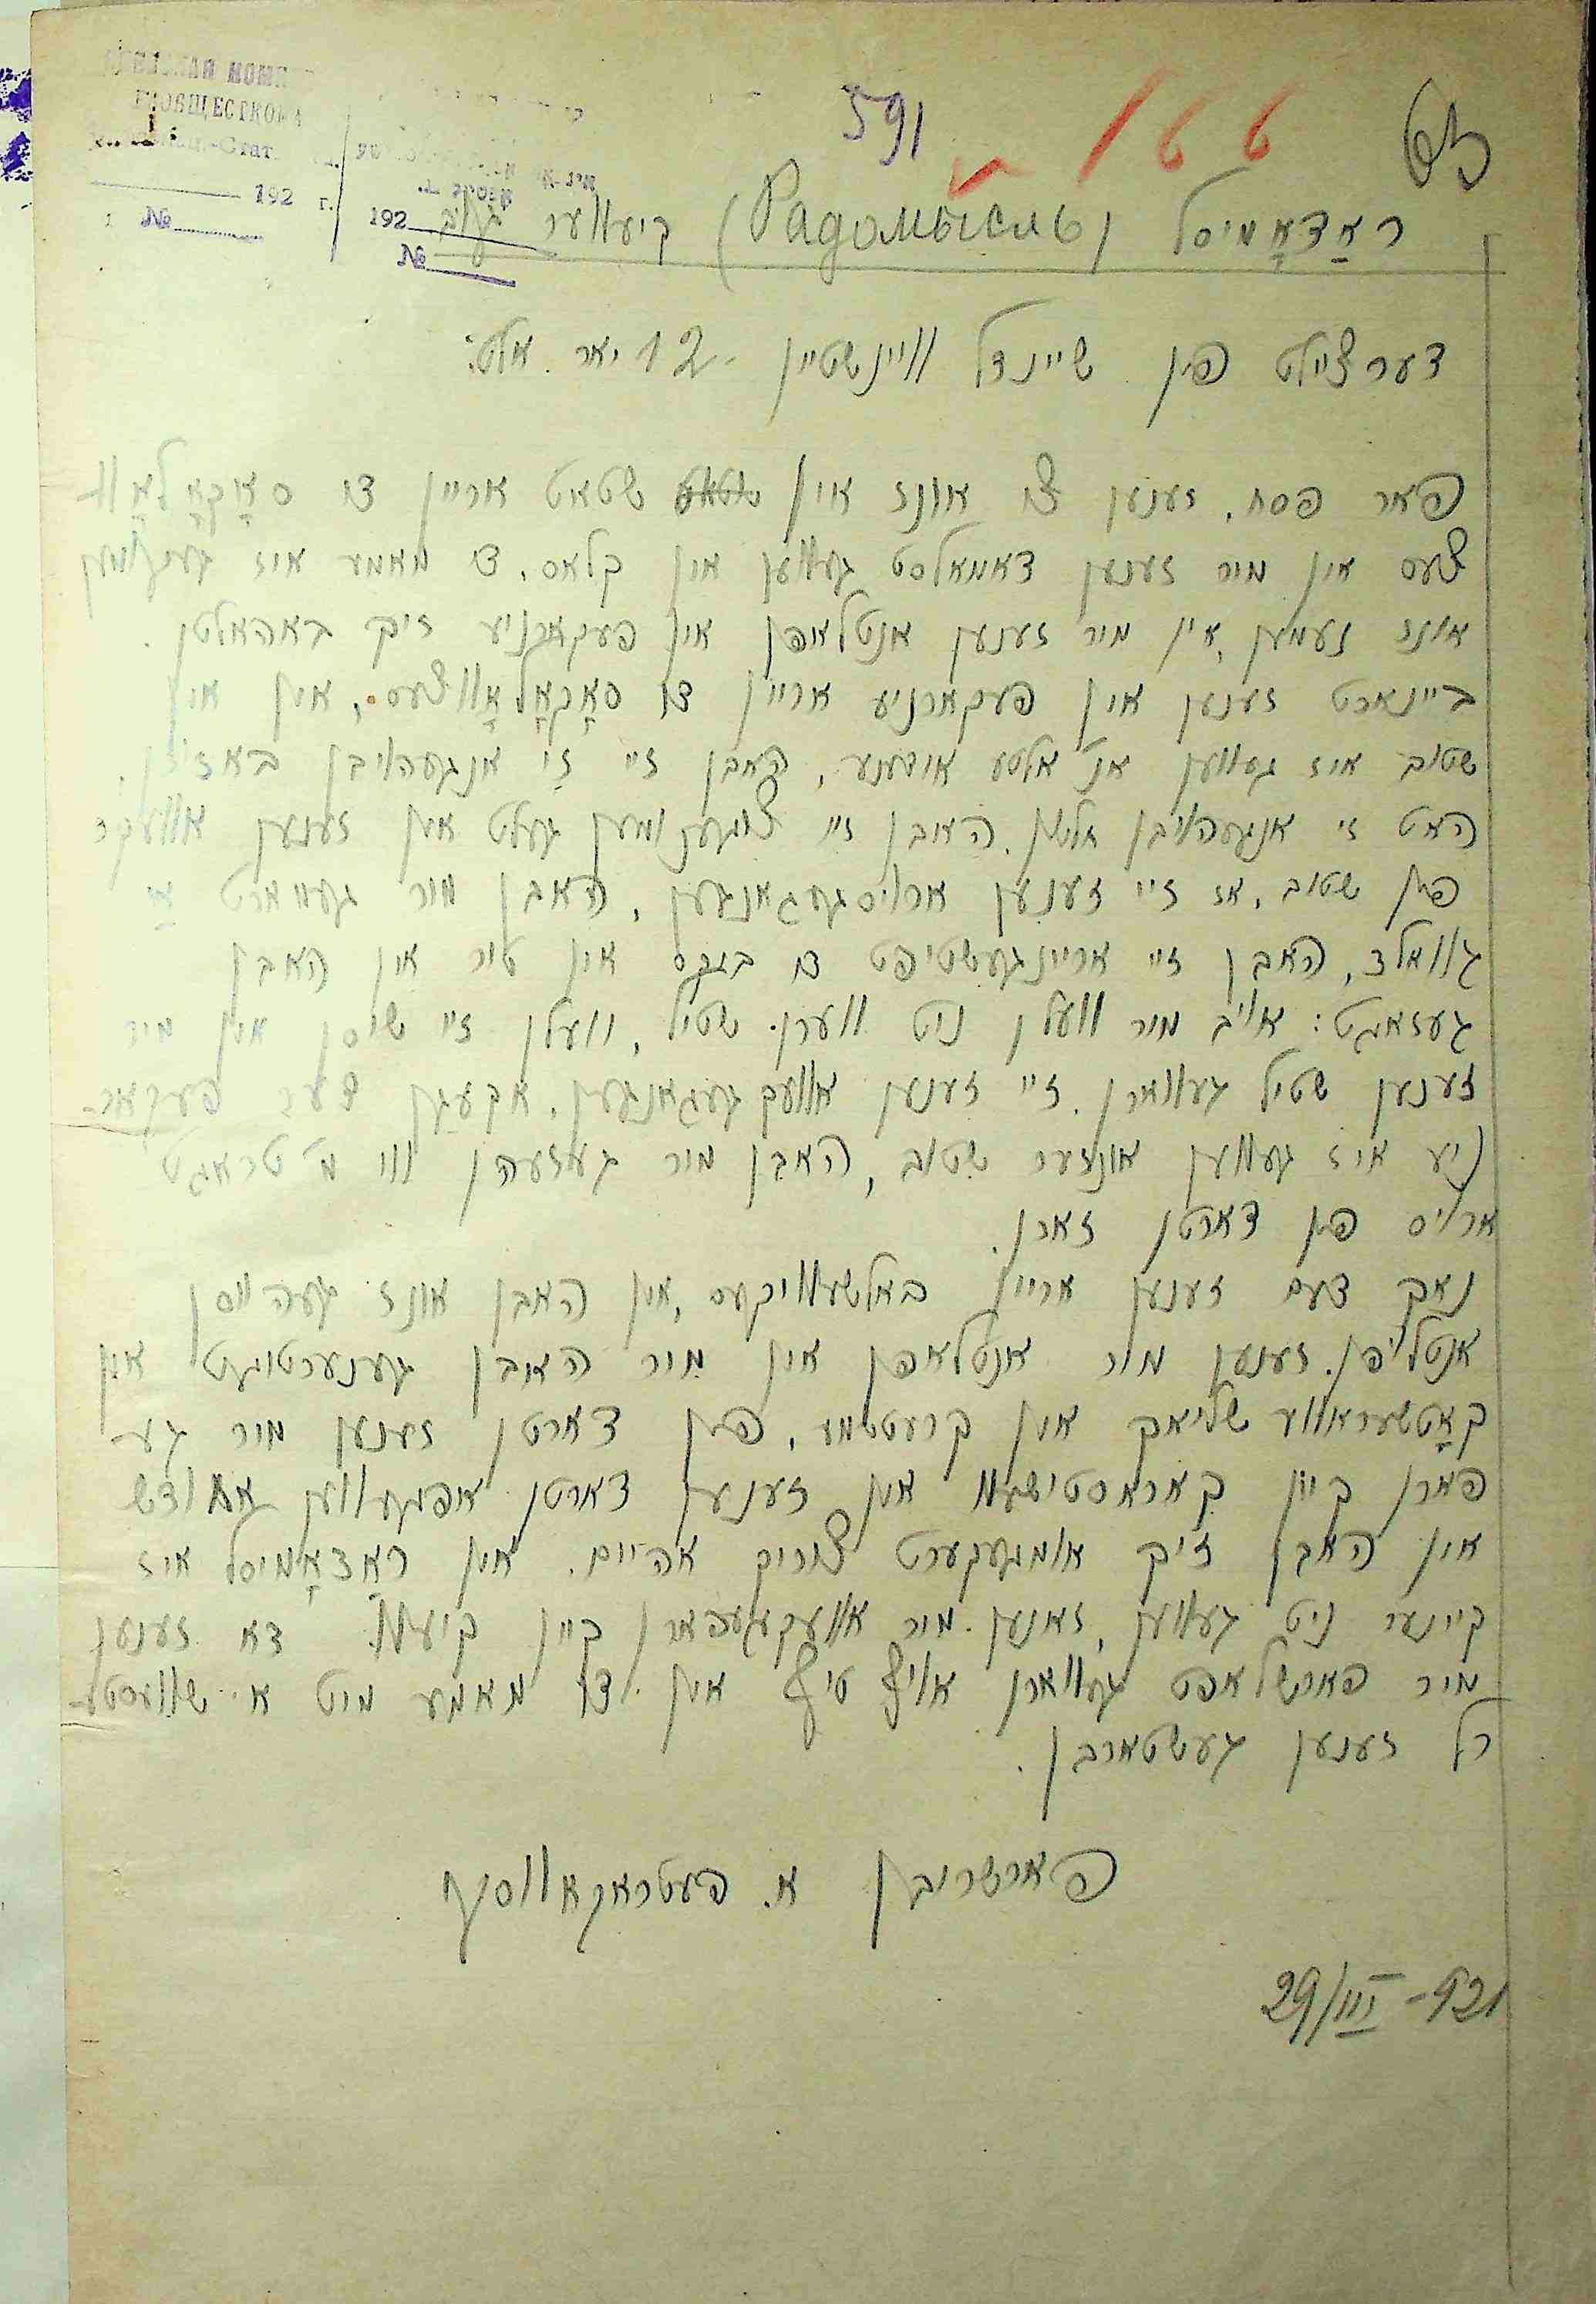 591 166 65
192 г. № 192 №
ראַדאָמיסל (Радомысль) קיעווער גוב
דערציילט פון שיינדל וויינשטיין - 12 יאר אלט:
פאר פסח, זענען צו אונז אין שטאט אריין די סאָקאָלאָוו
צעס און מיר זענען דאמאלסט געווען אין קלאס, די מאמע איז געקומען
אונז נעמען, אין מיר זענען אנטלאפן אין פעקארניע זיך באהאלטן.
ביינאכט זענען אין פעקארניע אריין די סאָקאָלאָווצעס, און אין
שטוב איז געווען אן אלטע אידענע, האבן זיי זי אנגעהויבן
האט זי אנגעהויבן האבן זיי צוגענומען געלט און זענען אוועק
פון שטוב, אז זיי זענען ארויסגעגאנגען, האבן מיר געמאכט אַ
גוואלד, האבן זיי אריינגעשטיפט די אין טיר און האבן
געזאגט: אויב מיר וועלן ניט ווערן שטיל, וועלן זיי שיסן און מיר
זענען שטיל געווארן. זיי זענען אוועקגעגאנגען, אקעגן דער פעקאר-
ניע איז געווען אונזער שטוב, האבן מיר געזעהן ווי מ׳טראגט
ארויס פון דארטן זאכן.
נאך דעם זענען אריין באלשעוויקעס, און האבן אונז געהייסן
אנטלויפן. זענען מיר אנטלאפן און מיר האבן גענעכטיגט אין
קאָטשעראווער שליאך אין קרעטשמע, פון דארטן זענען מיר גע-
פארן קיין קאראסטישעוו און זענען דארטן אפגעווען א חודש
און האבן זיך אומגעקערט צוריק אהיים. אין ראַדאָמיסל איז
קיינער ניט געווען, זאנען מיר אוועקגעפארן קיין קיעוו. דא זענען
מיר פארשלאפט געווארן אויף טיף און די מאמע מיט א שוועסטע-
רל זענען געשטארבן.
פארשריבן א. פעטראקאווסקי
29/III - 921